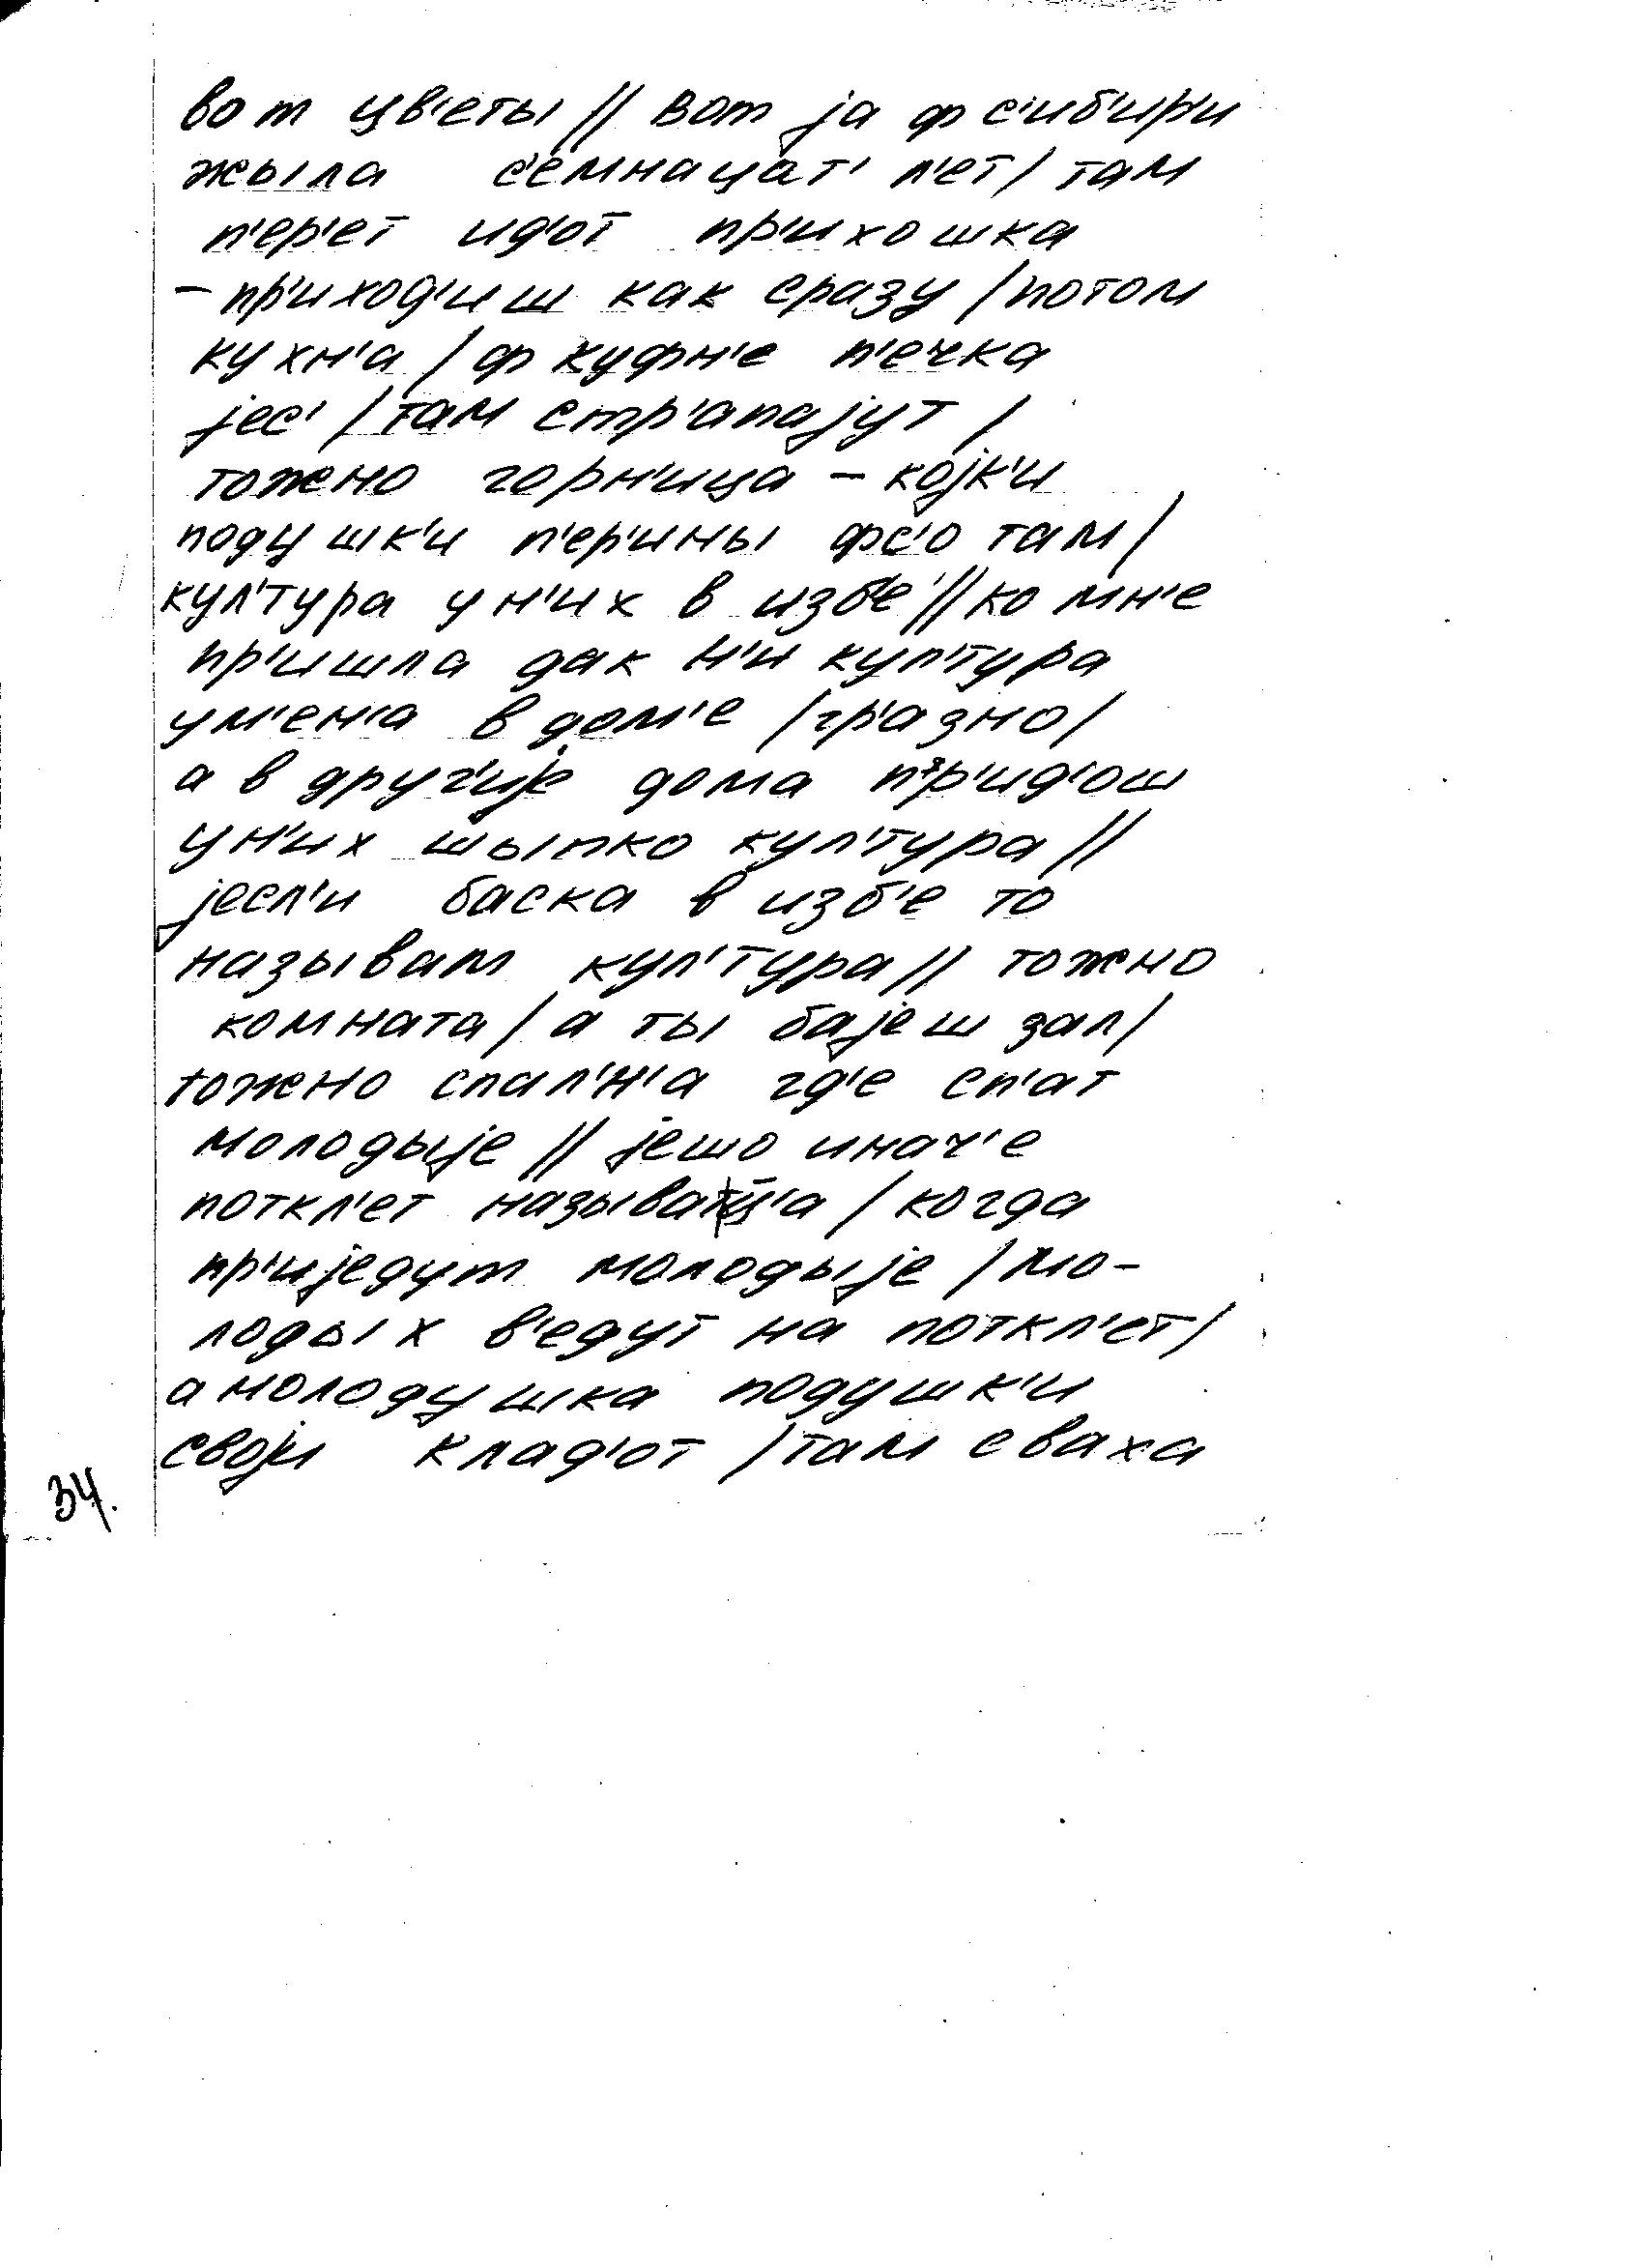 вот цв'еты // вот jа ф с'иб'ир'и
жыла с'емнацат' л'ет / там
п'ер'ет ид'от пр'ихошка
– пр'иход'иш как сразу / потом
кухн'а / ф куфн'е п'ечка
jес' / там стр'апаjут /
тожно горн'ица – коjк'и
подушк'и п'ер'ины фс'о там /
кул'тура у н'их в изб'е // ко мн'е
пр'ишла дак н'и кул'тура
у м'ен'а в дом'е / гр'азно /
а в друг'иjе дома пр'ид'ош
у н'их шыпко кул'тура //
jесл'и баска в изб'е то
называт кул'тура // тожно
комната / а ты баjеш зал /
тожно спал'н'а гд'е сп'ат
молодыjе // jешо инач'е
поткл'ет называц'а / когда
пр'иjедут молодыjе / мо-
лодых в'едут на поткл'ет /
а молодушка подушк'и
своjи клад'от / там сваха
34.